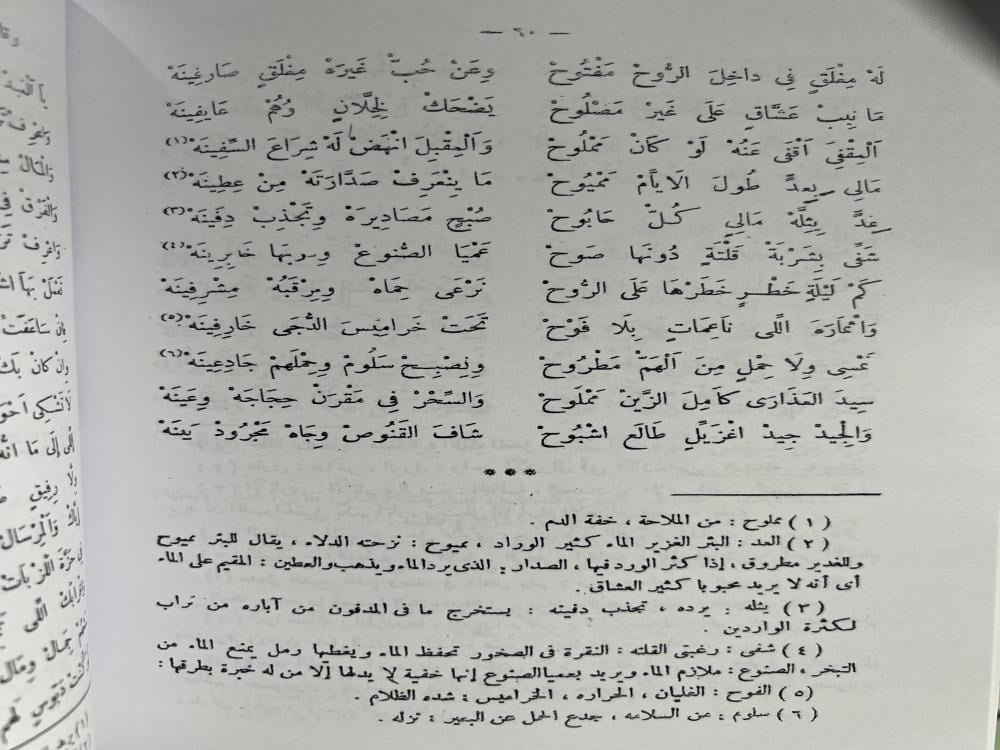 — ٦٠ —
لَهْ مِغْلَقٍ فِي داخِلَ الرُّوحْ مَفْتُوحْ وِعَنْ حُبّْ غَيرَهْ مِغْلَقٍ صَارِغِينَهْ
مَا نِيبْ عَشَّاقٍ عَلَى غَيرْ مَصْلُوحْ يَضْحَكْ لِخِلَّانٍ وُهُمْ عَايِفِينَهْ
اَلْمِقْفِيَ اَقْفَى عَنْهُ لَوْ كَانْ مَمْلُوحْ وَاَلْمِقْبِلَ انْهَضْ لَهْ شِرَاعَ السَّفِينَهْ (١)
مَالِي بِعِدٍّ طُولَ الَايَّامْ مَمْيُوحْ مَا يِنْعَرِفْ صَدَّارَتَهْ مِنْ عِطِينَهْ (٢)
عِدٍّ يِثِلَّهْ مَالِي كُلّْ حَابُوحْ صُبْحٍ مَصَادِيرَهْ وِتَجْذِبْ دِفَينَهْ (٣)
شَفِّى بِشَرْبَةْ قَلْتَةٍ دُونَهَا صَوحْ عَمْيَا الصُّنوعْ ودربها خَابِرِينَهْ (٤)
كَمْ لَيْلَةٍ خَطْرٍ خَطَرْهَا عَلَى الرُّوحْ نَرْعَى حِمَاهْ ومِرْقَبُهْ مِشْرِفِينَهْ
وَاثْمَارَهَ اللَّى نَاعِمَاتٍ بِلَا فَوْحْ تَحَتْ خَرامِيسَ الدُّجَى خَارِفِينَهْ (٥)
نَمْسِى وِلَا حِمْلٍ مِنَ اَلْهَمّْ مَطْرُوحْ وِنِصْبِحْ سَلُومْ وحِمْلَهمْ جَادِعِينَهْ (٦)
سِيدَ العَذَارَى كَامِلَ الزَّينْ مَمْلَوحْ وَالسِّحْرْ فِي مَقْرَنْ حِجَاجَهْ وِعَينَهْ
وَالجِيدْ جِيدْ اغْزَيِّلٍ طَالَعَ اشْبُوحْ شَافَ القَنُوصْ وِجَاهْ مَجْرُودْ يَينَهْ
***
( ١ ) مملوح : من الملاحة ، خفة الدم .
( ٢ ) العد : البئر الغزير الماء كثير الوراد ، مميوح : نزحته الدلاء ، يقال للبئر مميوح
وللغدير مطروق ، إذا كثر الورد فيها ، الصدار : الذى يرد الماء ويذهب والعطين : المقيم على الماء
أى أنه لا يريد محبوبا كثير العشاق .
( ٣ ) يثله : يرده ، تجذب دفينه : يستخرج ما فى المدفون من آباره من تراب
لكثرة الواردين .
( ٤ ) شفى : رغبتى القلته : النقرة فى الصخور تحفظ الماء ويغطها رمل يمنع الماء من
التبخر ، الصنوع : ملازم الماء ويريد بعميا الصنوع إنها خفية لا يدلها إلا من له خبرة بطرقها :
( ٥ ) الفوح : الغليان ، الحراره ، الخراميس : شده الظلام .
( ٦ ) سلوم : من السلامه ، جدع الحمل عن البعير : نزله .